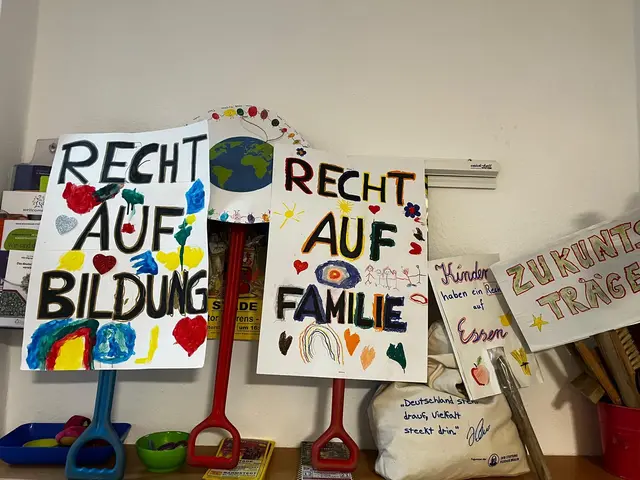 RECHT
AUF
BILDUNG
RECHT
AUF
FAMILIE
Kinder
haben ein
auf
Essen
ZUKUNTS
TRÄGE
"Deutschland
drauf, Vielfalt
steckt drin."